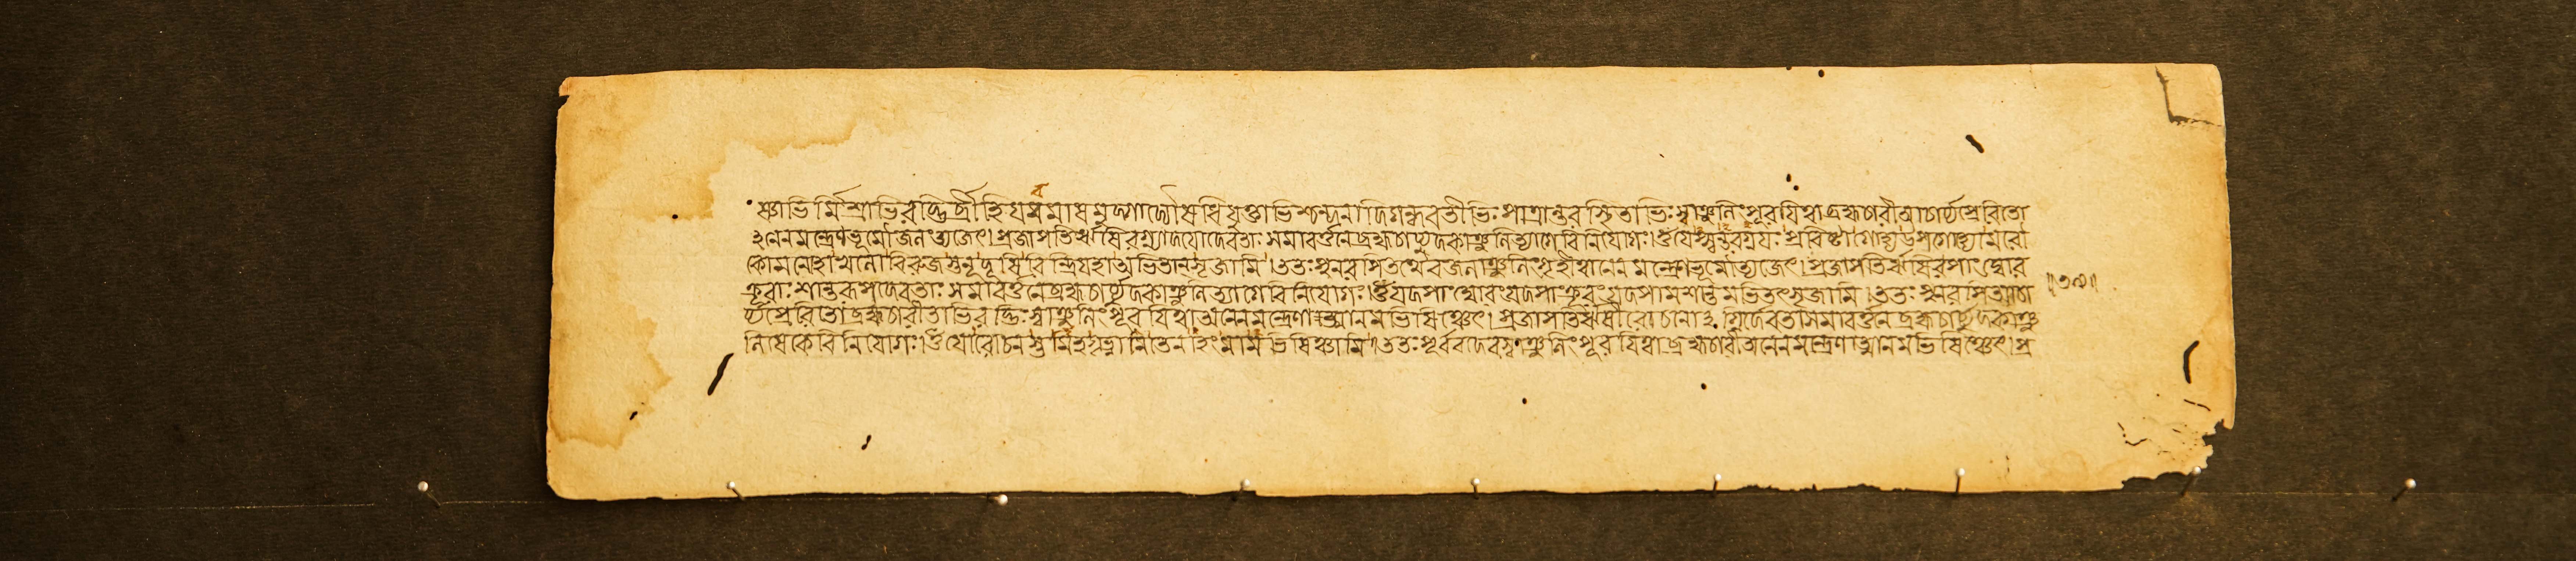 ষ্ণাভির্মিশ্রাভিরদ্ভির্ব্রীহিযবমাষমুদ্গশাল্যৌষধিযুক্তাভিশ্চন্দনাদিগন্ধবতীভিঃ পাত্রান্তরস্থিতাভিঃ স্বাঞ্জলিং পূরয়িত্বা ব্রহ্মচারী আচার্য্যপ্রেরিতো
ঽনেন মন্ত্রেণ ভূমৌ জলং ত্যজেৎ। প্রজাপতির্ঋষিরগ্ন্যাদযো দেবতাঃ সমাবর্ত্তনে ব্রহ্মচার্য্যুদকাঞ্জলিত্যাগে বিনিযোগঃ। ওঁ যে অপ্স্বন্তরগ্নযঃ প্রবিষ্টা গোহ্য উপগোহ্যো মরো
কো মনোহা খলো বিরুজস্তনূদূষিরিন্দ্রিযহা অভিতান্ সৃজামি। ততঃ পুনরপি তথৈব জলাঞ্জলিং গৃহীত্বানেন মন্ত্রেণ ভূমৌ ত্যজেৎ। প্রজাপতির্ঋষিরপাং ঘোর
ক্রূরাঃ শান্তরূপ দেবতাঃ সমাবর্ত্তনে ব্রহ্মচার্য্যুদকাঞ্জলিত্যাগে বিনিযোগঃ। ওঁ যদপাং ঘোরং যদপাং ক্রূরং যদপামশান্তমভিতৎসৃজামি। ততঃ পুনরপিআচা ॥৩৯॥
র্য্যপ্রেরিতো ব্রহ্মচারী তাভিরদ্ভিঃ স্বাঞ্জলিং পূরযিত্বা অনেন মন্ত্রেণাত্মানমভিষিঞ্চেৎ। প্রজাপতির্ঋষীরোচনাঽগ্নির্দেবতা সমাবর্ত্তনে ব্রহ্মচার্য্যুদকাঞ্জ
লিষেকে বিনিযোগঃ। ওঁ যো রোচনস্তমিহ গৃহ্ণামি তেনাহং মামভিষিঞ্চামি। ততঃ পূর্ববদেব স্বাঞ্জলিং পূরযিত্বা ব্রহ্মচারী অনেন মন্ত্রেণাত্মানমভিষিঞ্চেৎ। প্র